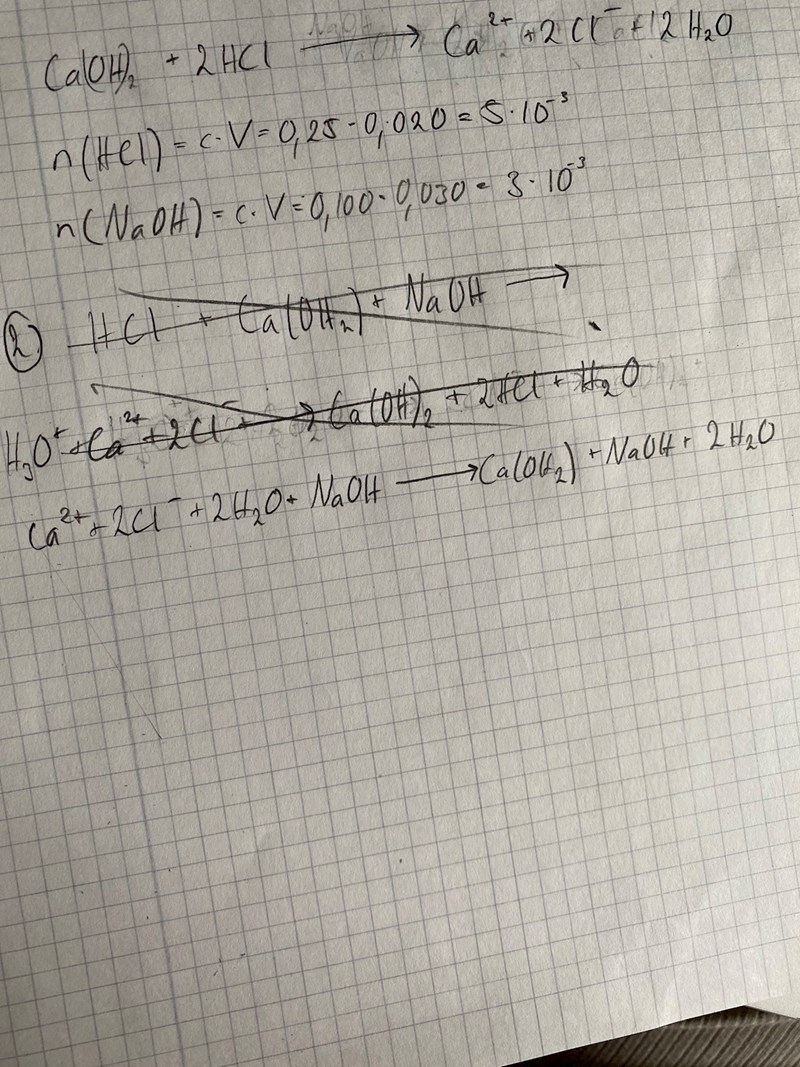 Ca(OH)₂ + 2HCl ⟶ Ca²⁺ + 2Cl⁻ + 2H₂O
n(HCl) = c·V = 0,25·0,020 = 5·10⁻³
n(NaOH) = c·V = 0,100·0,030 = 3·10⁻³
② HCl + Ca(OH₂) + NaOH ⟶
H₃O⁺ + Ca²⁺ + 2Cl⁻ ⟶ Ca(OH)₂ + 2HCl + H₂O
Ca²⁺ + 2Cl⁻ + 2H₂O + NaOH ⟶ Ca(OH₂) + NaOH + 2H₂O